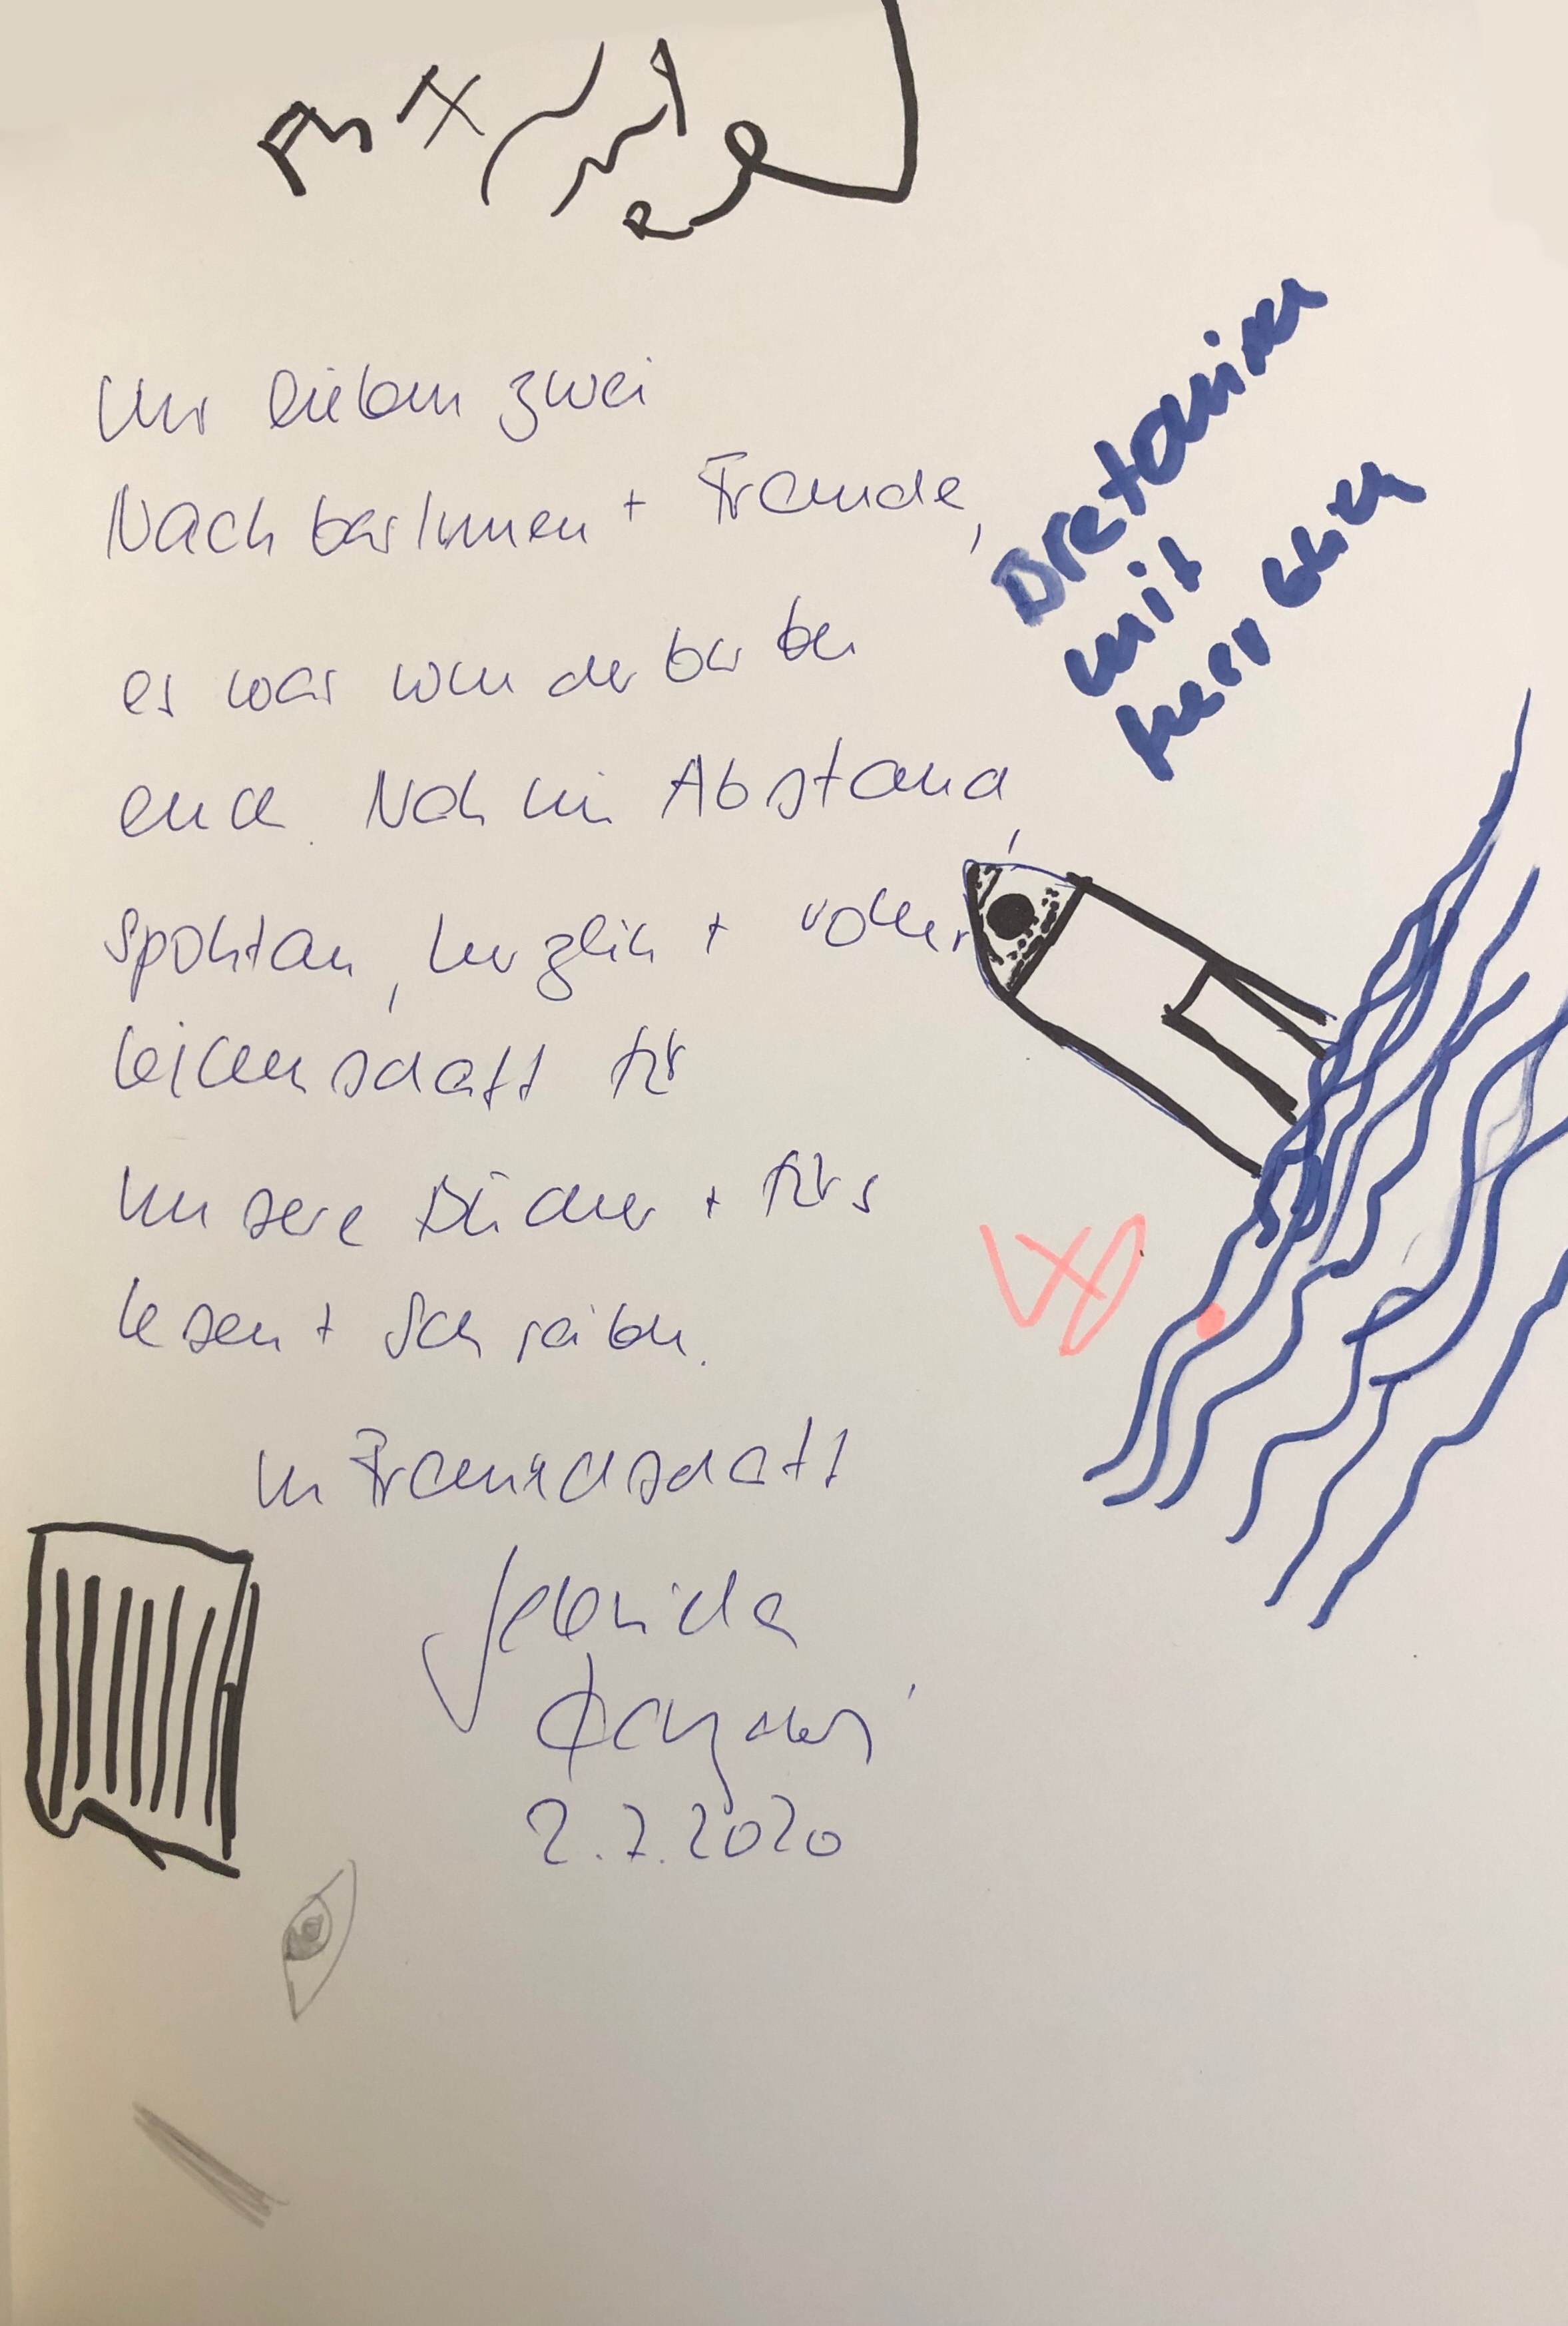 Ihr lieben zwei
NachbarInnen + Freunde,
es war wunderbar bei
euch. Nah im Abstand,
spontan, herzlich + voller
Leidenschaft für
unsere Bücher + fürs
lesen + schreiben.
In Freundschaft
2.7.2020
Bretonin
mit